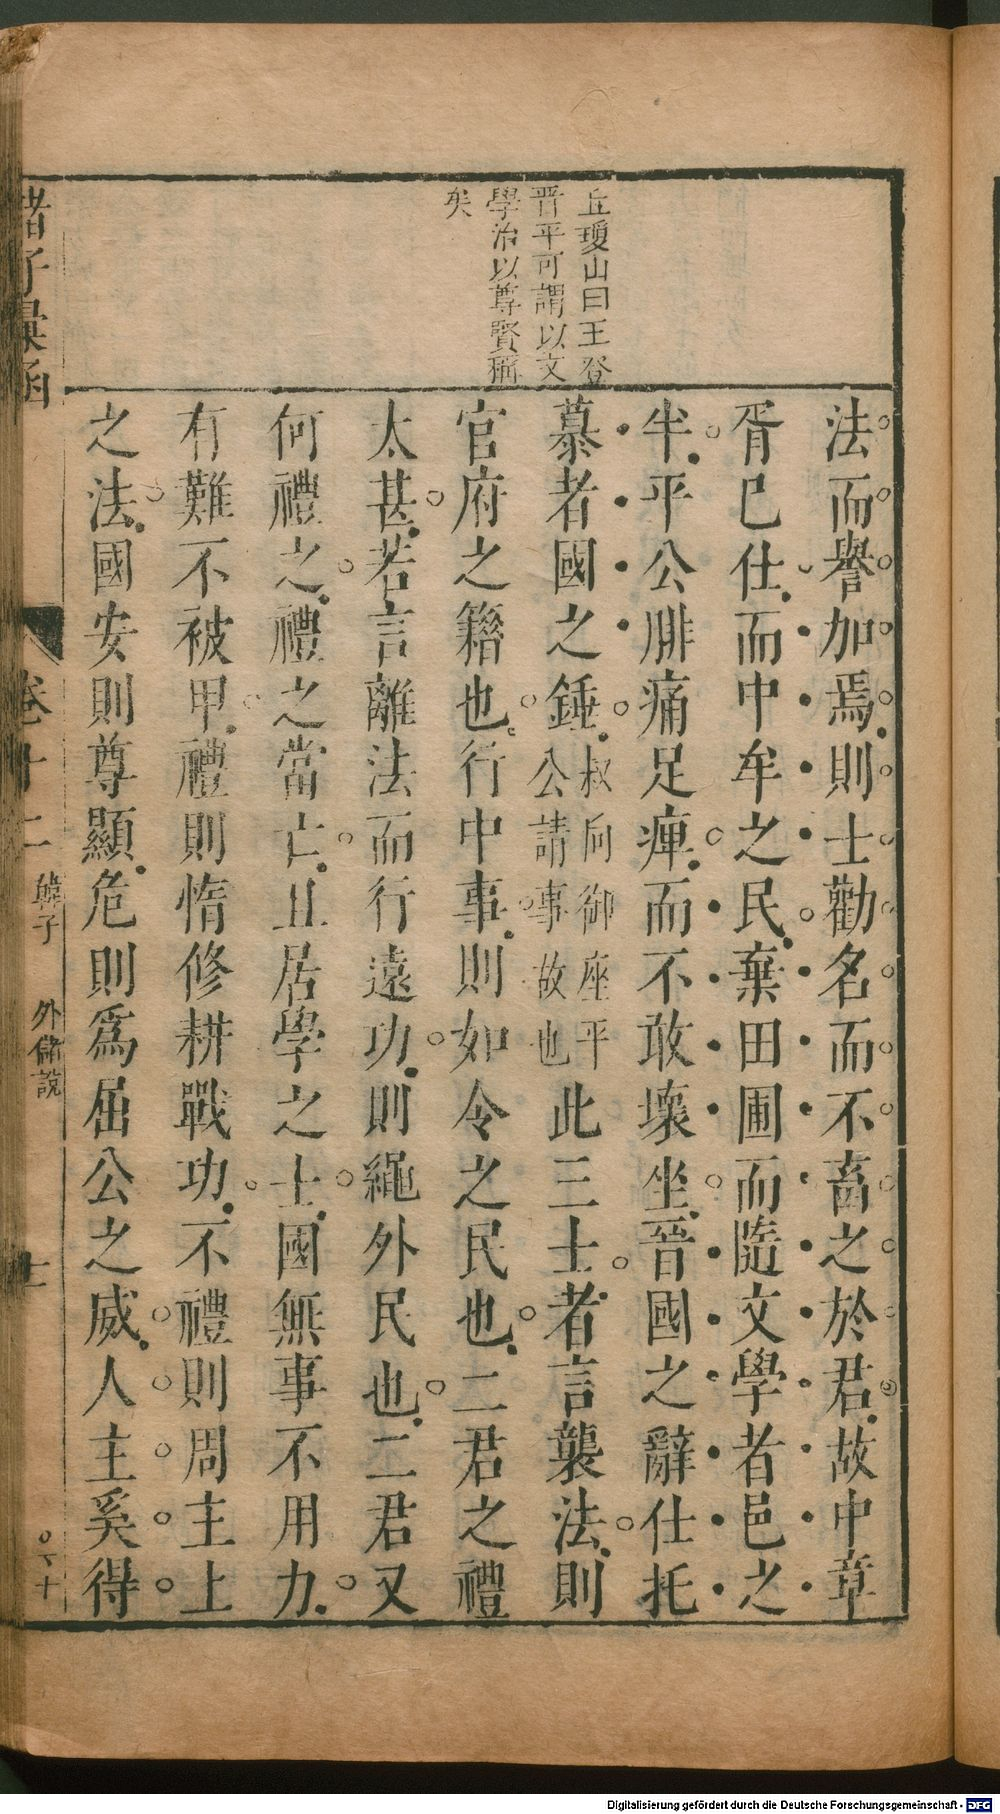 丘瓊山曰王登
晋平可謂以文
學治以尊賢稱
矣
法而譽加焉則士勸名而不畜之於君故中章
胥已仕而中牟之民棄田圃而隨文學者邑之
半平公腓痛足痺而不敢壞坐晉國之辭仕托
慕者國之錘叔向御座平公請事故也此三士者言襲法則
官府之籍也行中事則如令之民也二君之禮
太甚若言離法而行遠功則繩外民也二君又
何禮之禮之當亡且居學之士國無事不用力
有難不被甲禮則惰修耕戰功不禮則周主上
之法國安則尊顯危則爲屈公之威人主奚得
諸子彙函
卷十二
韓子
外儲說
Digitalisierung gefördert durch die Deutsche Forschungsgemeinschaft - DFG